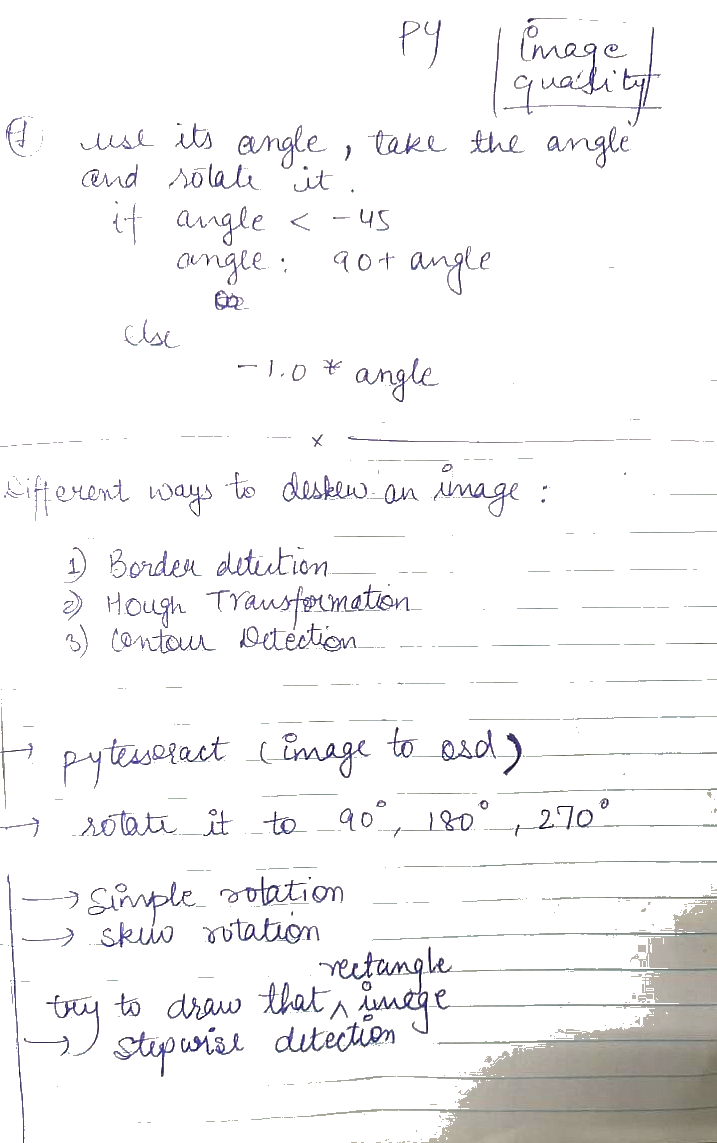 PY
Image
quality
use its angle, take the angle
and rotate it.
if angle < -45
angle: 90+ angle
else
-1.0 * angle
x
Different ways to deskew an image:
1) Border detection
2) Hough Transformation
3) Contour Detection
→ pytesseract (image to osd)
→ rotate it to 90°, 180°, 270°
→ Simple rotation
→ skew rotation
rectangle
try to draw that ^ image
→ stepwise detection